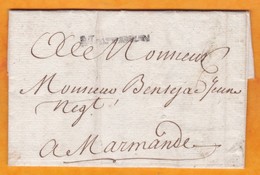 A Monsieur
Monsieur Bensejac Jeune
Negt
a Marmande